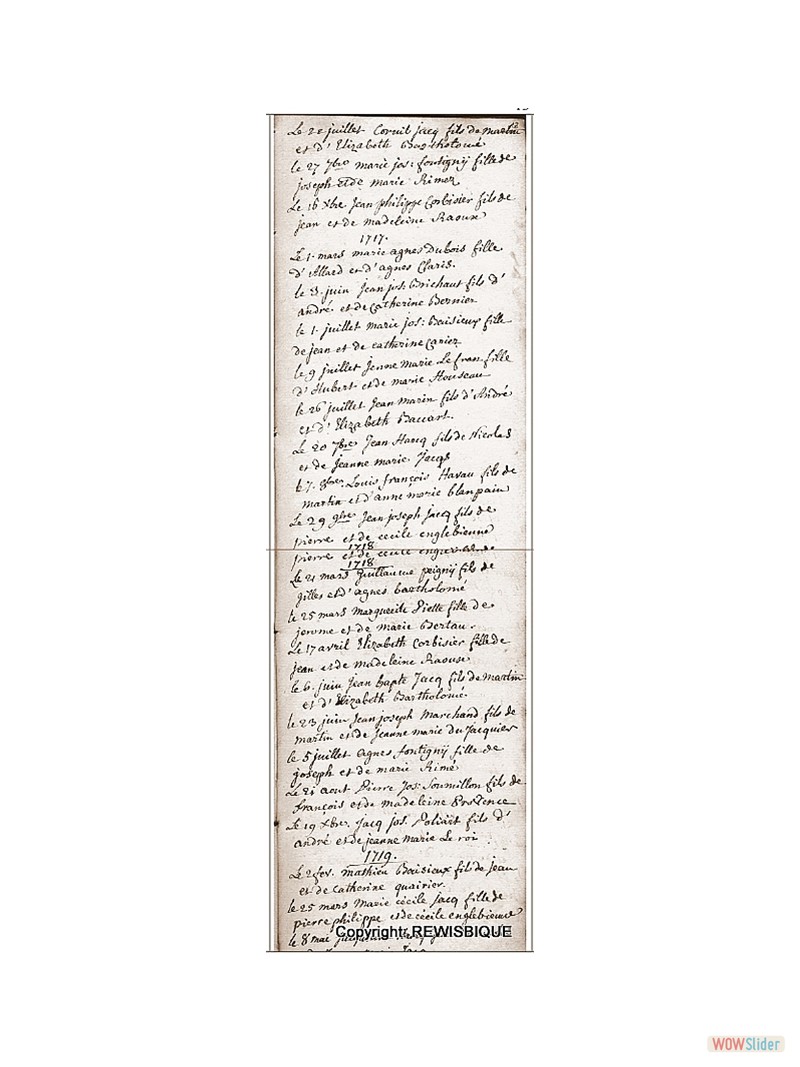 Le 20 juillet Cornil jacq fils de martin
et d'Elizabeth Bartholomé
le 27 7bre marie jos: fontignij fille de
joseph et de marie Rimez
Le 16 Xbre Jean philippe Corbisier fils de
jean et de madeleine Raoux
1717.
Le 1. mars marie agnes Dubois fille
d'Allard et d'agnes Claris.
le 3. juin Jean jos: Brichaut fils d'
andré et de Catherine Bernier
le 1. juillet marie jos: Baisieux fille
de jean et de catherine Cariez
le 9 juillet Jenne Marie Le fran fille
d'Hubert et de marie Houseau
le 26 juillet Jean marin fils d'André
et d'Elizabeth Baccart.
Le 20 7bre Jean Hacq fils de Nicolas
et de Jeanne marie Jacqs
Le 7. 8bre Louis françois Havau fils de
martin et d'anne marie blanpain
Le 29 9bre Jean joseph jacq fils de
pierre et de cecile englebienne
1718
pierre et de cecile
1718
Le 21 mars Guillaume peignij fils de
gilles et d'agnes bartholomé
le 25 mars Marguerite Piette fille de
jerome et de marie Bertau.
Le 17 avril Elizabeth Corbisier fille de
jean et de Madeleine Raoux
le 6. juin Jean Bapte Jacq fils de Martin
et d'Elizabeth Bartholomé.
le 23 juin Jean joseph Marchand fils de
martin et de Jeanne marie du Jacquier
le 5 juillet Agnes fontignij fille de
joseph et de marie Rimé
Le 21 aout Pierre Jos: Soumillon fils de
françois et de Madeleine
Le 19 Xbre. Jacq jos. Poliart fils d'
andré et de jeanne marie Le roi
1719.
Le 2 fev. mathieu Baisieux fils de jean
et de Catherine quairier.
le 25 mars Marie cécile jacq fille de
pierre philippe et de cécile englebienne
le 8 mai
Copyright: REWISBIQUE
WOWSlider